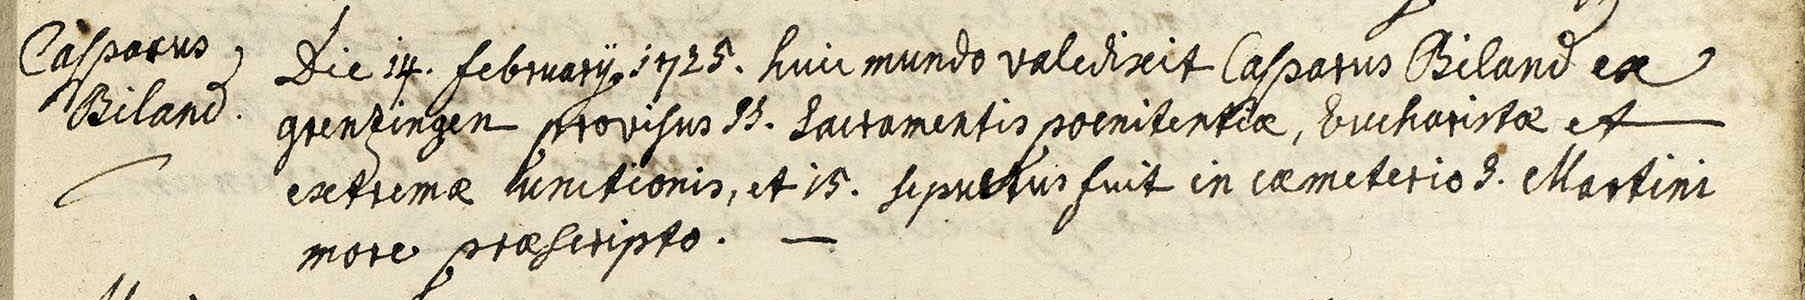 Casparus
Biland.
Die 14. februarÿ. 1725. huic mundo valedixit Casparus Biland ex
grenzingen provisus SS. Sacramentis poenitentiæ, Eucharistæ et
extremæ unctionis, et 15. sepultus fuit in cæmeterio S. Martini
more præscripto. —